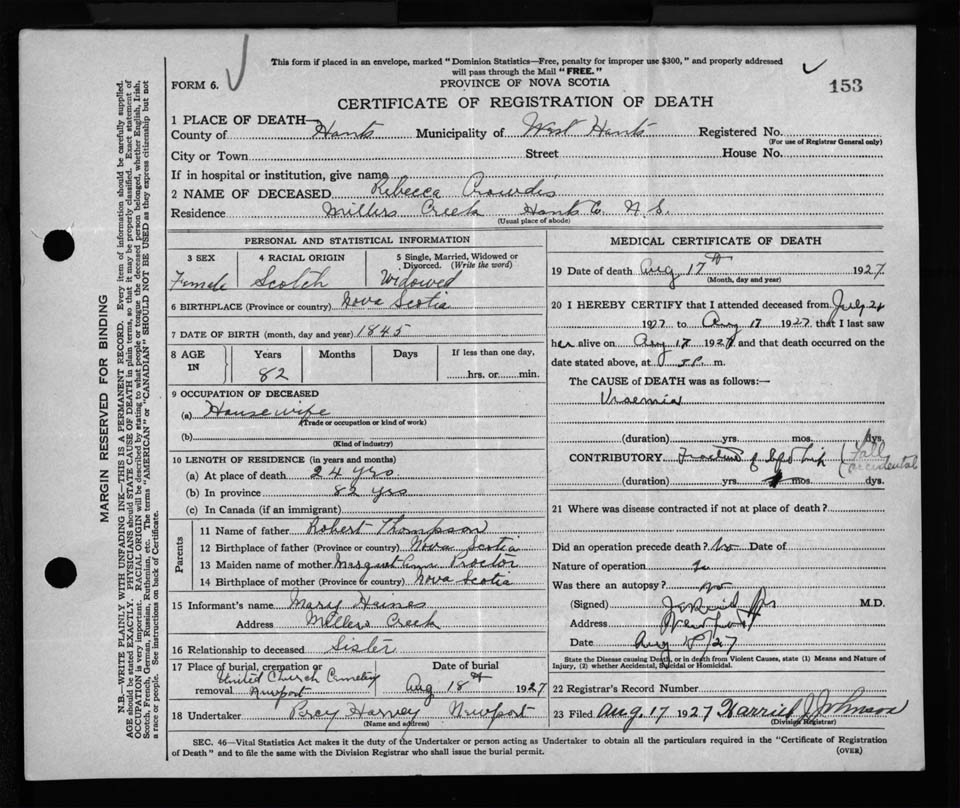 This form if placed in an envelope, marked "Dominion Statistics—Free, penalty for improper use $300," and properly addressed
will pass through the Mail "FREE."
FORM 6.
PROVINCE OF NOVA SCOTIA
153
CERTIFICATE OF REGISTRATION OF DEATH
1 PLACE OF DEATH—
County of Hants Municipality of West Hants Registered No.
(For use of Registrar General only)
City or Town Street House No.
If in hospital or institution, give name
2 NAME OF DECEASED Rebecca Crowdis
Residence Millers Creek Hants Co. N. S.
(Usual place of abode)
PERSONAL AND STATISTICAL INFORMATION
3 SEX 4 RACIAL ORIGIN 5 Single, Married, Widowed or
Divorced. (Write the word)
Female Scotch Widowed
6 BIRTHPLACE (Province or country) Nova Scotia
7 DATE OF BIRTH (month, day and year) 1845
8 AGE IN Years Months Days If less than one day,
82 hrs. or min.
9 OCCUPATION OF DECEASED
(a) Housewife
(Trade or occupation or kind of work)
(b)
(Kind of industry)
10 LENGTH OF RESIDENCE (in years and months)
(a) At place of death 24 yrs
(b) In province 82 yrs
(c) In Canada (if an immigrant)
Parents
11 Name of father Robert Thompson
12 Birthplace of father (Province or country) Nova Scotia
13 Maiden name of mother Margaret Ann Proctor
14 Birthplace of mother (Province or country) Nova Scotia
15 Informant's name Mary Haines
Address Millers Creek
16 Relationship to deceased Sister
17 Place of burial, cremation or removal United Church Cemetery Newport
Date of burial Aug 18th 1927
18 Undertaker Percy Harvey Newport
(Name and address)
MEDICAL CERTIFICATE OF DEATH
19 Date of death Aug 17th 1927
(Month, day and year)
20 I HEREBY CERTIFY that I attended deceased from July 24
1927 to Aug 17 1927 that I last saw
her alive on Aug 17 1927 and that death occurred on the
date stated above, at P. m.
The CAUSE of DEATH was as follows:—
Uraemia
(duration) yrs. mos. dys.
CONTRIBUTORY Fracture of (Fall accidental
(duration) yrs. mos. dys.
21 Where was disease contracted if not at place of death?
Did an operation precede death? No Date of
Nature of operation
Was there an autopsy? no
(Signed) M.D.
Address Newport
Date Aug /27
State the Disease causing Death, or in death from Violent Causes, state (1) Means and Nature of
Injury, (2) whether Accidental, Suicidal or Homicidal.
22 Registrar's Record Number
23 Filed Aug. 17 1927 Harriet J Johnson
(Division Registrar)
SEC. 46—Vital Statistics Act makes it the duty of the Undertaker or person acting as Undertaker to obtain all the particulars required in the "Certificate of Registration
of Death" and to file the same with the Division Registrar who shall issue the burial permit.
(OVER)
MARGIN RESERVED FOR BINDING
N.B.—WRITE PLAINLY WITH UNFADING INK—THIS IS A PERMANENT RECORD. Every item of information should be carefully supplied.
AGE should be stated EXACTLY. PHYSICIANS should STATE CAUSE OF DEATH in plain terms, so that it may be properly classified. Exact statement of
OCCUPATION is very important. RACIAL ORIGIN will be described by stating to what people or tongue the deceased person belonged, whether English, Irish,
Scotch, French, German, Russian, Ruthenian, etc. The terms "AMERICAN" or "CANADIAN" SHOULD NOT BE USED as they express citizenship but not
a race or people. See instructions on back of Certificate.